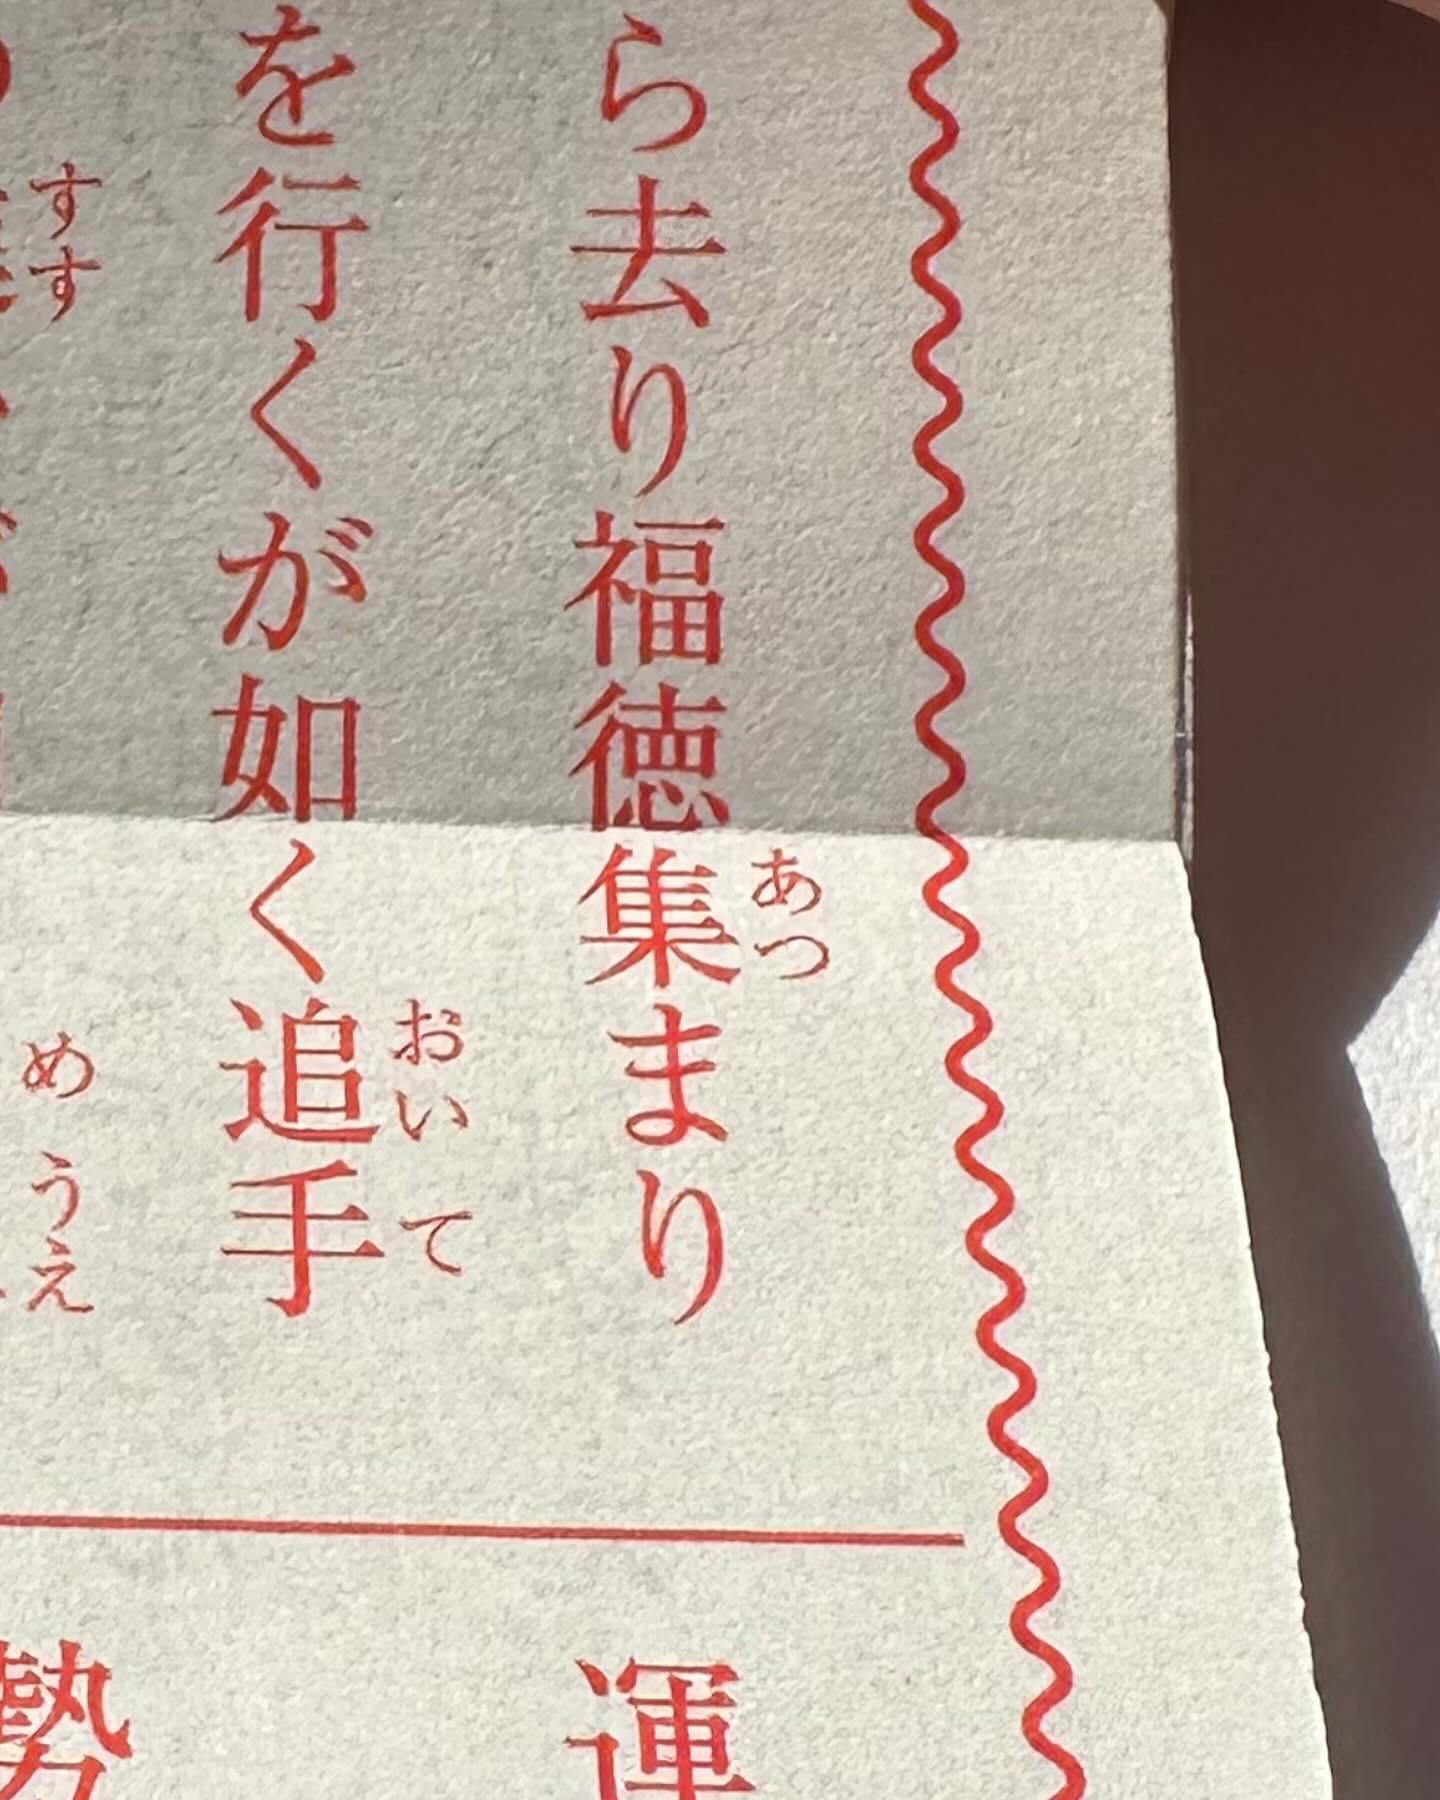 ら去り福徳集まり
あつ
を行くが如く追手
おいて
すす
め うえ
運
勢